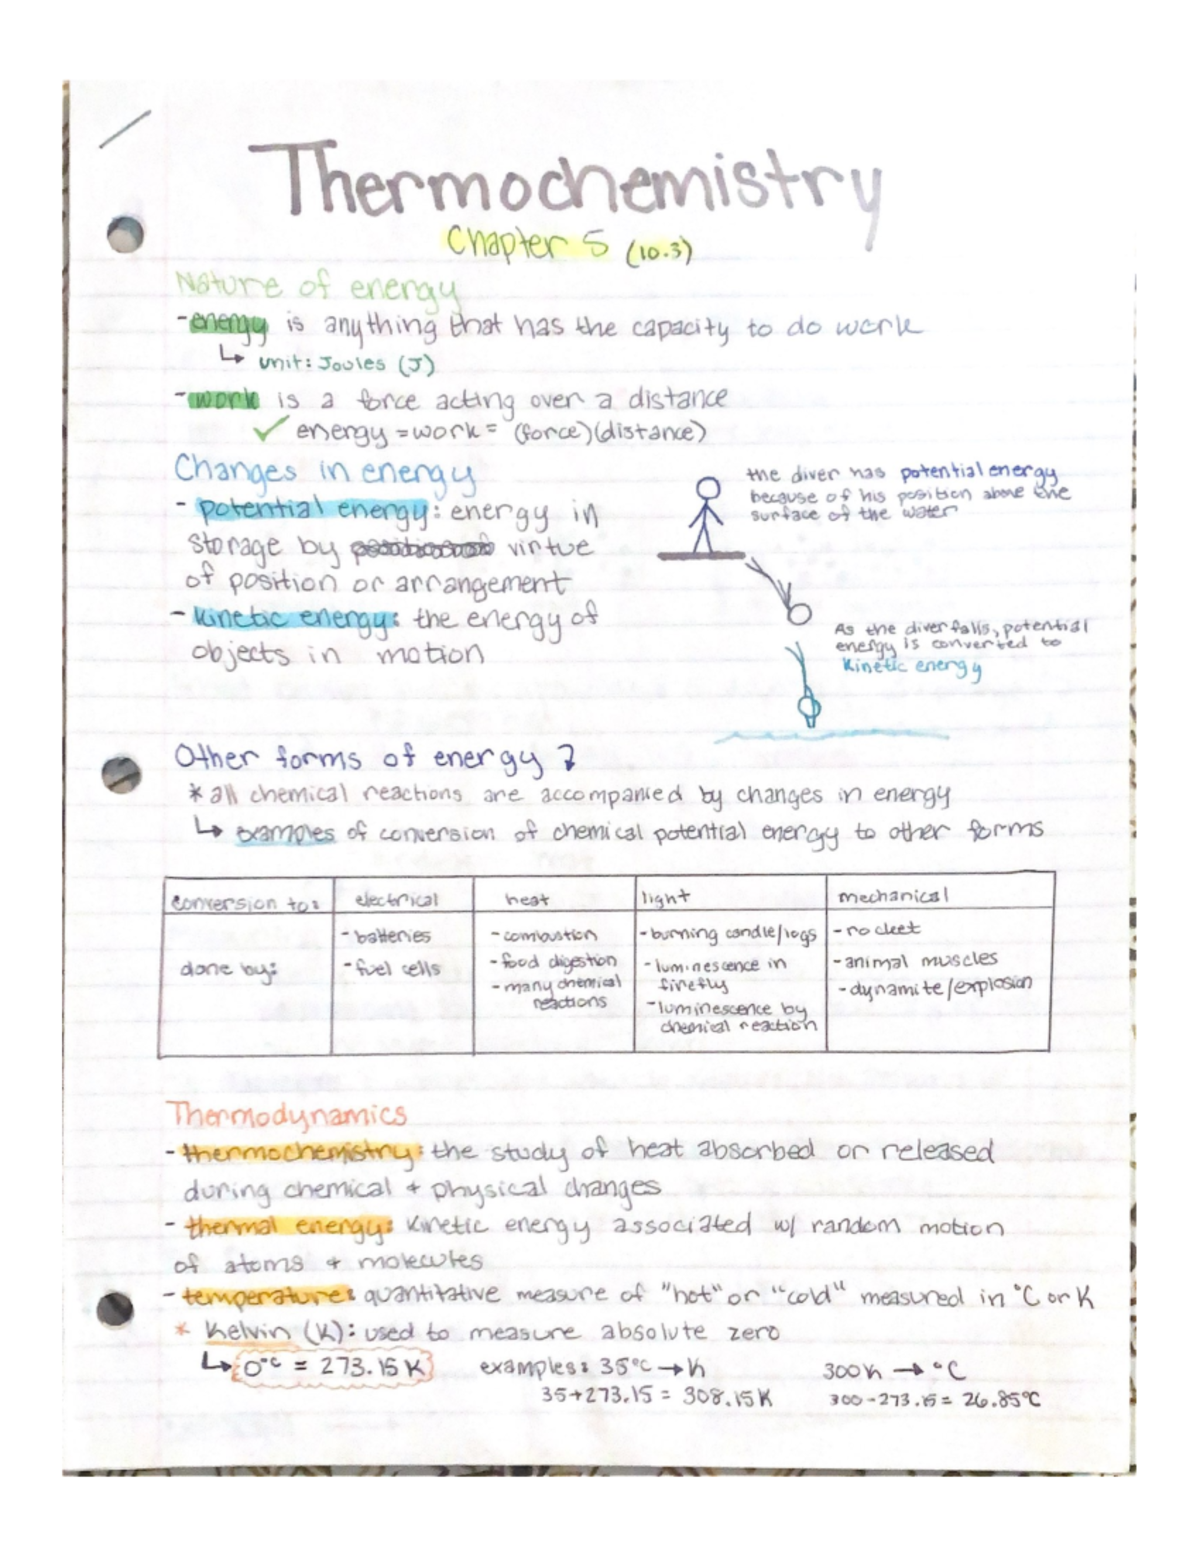 Thermochemistry
Chapter 5 (10.3)
Nature of energy
- energy is anything that has the capacity to do work
↳ unit: Joules (J)
- work is a force acting over a distance
✓ energy = work = (force)(distance)
Changes in energy
- potential energy: energy in
storage by virtue
of position or arrangement
- kinetic energy: the energy of
objects in motion
the diver has potential energy
because of his position above the
surface of the water
As the diver falls, potential
energy is converted to
kinetic energy
Other forms of energy
* all chemical reactions are accompanied by changes in energy
↳ examples of conversion of chemical potential energy to other forms
conversion to: electrical heat light mechanical
done by:
- batteries
- fuel cells
- combustion
- food digestion
- many chemical
reactions
- burning candle/logs
- luminescence in
firefly
- luminescence by
chemical reaction
- rocket
- animal muscles
- dynamite/explosion
Thermodynamics
- thermochemistry: the study of heat absorbed or released
during chemical + physical changes
- thermal energy: kinetic energy associated w/ random motion
of atoms + molecules
- temperature: quantitative measure of "hot" or "cold" measured in °C or K
* Kelvin (K): used to measure absolute zero
↳ 0°C = 273.15 K examples: 35°C → K 300 K → °C
35+273.15 = 308.15 K 300-273.15 = 26.85°C